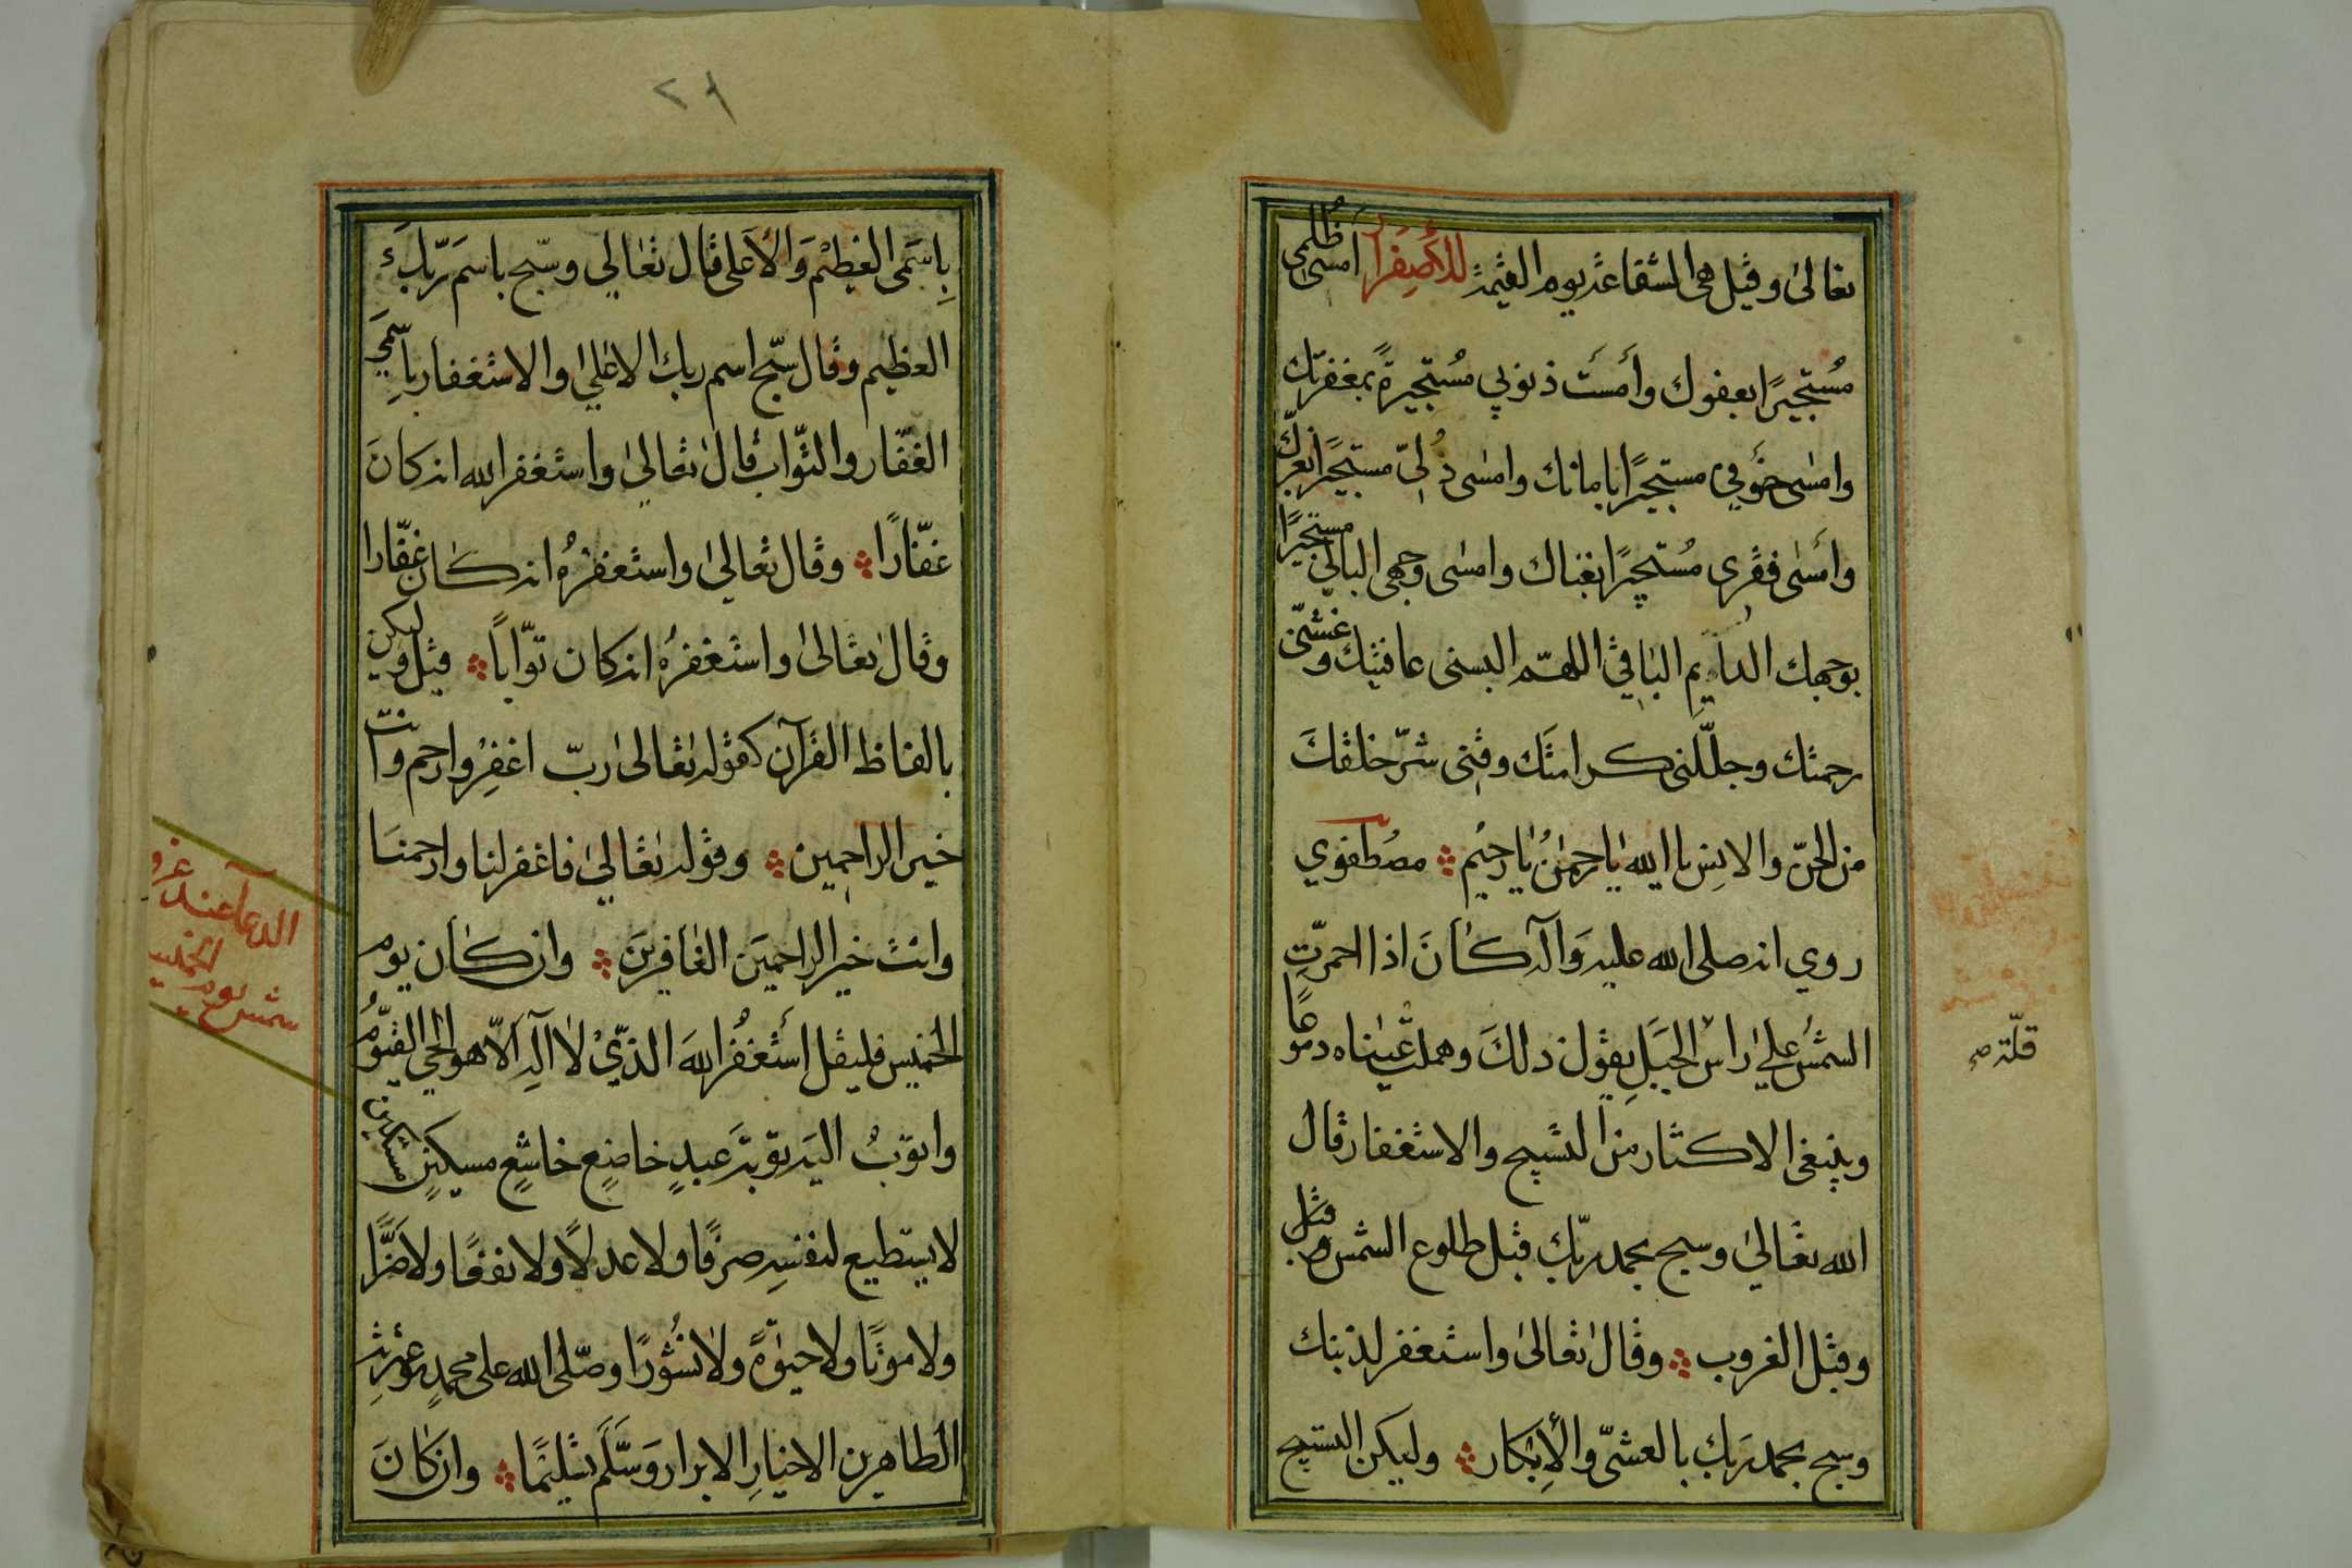 تعالى وقيل هى الشفاعة يوم القيمة للأصفرار امسى ظلمى
مُستجيرًا بعفوك وأمسَت ذنوبي مُستجيرةً بمغفرتك
وامسٰى خوفي مستجيرًا بامانك وامسٰى ذُلّي مستجيرًا بعزّك
وأمسٰى فقرى مُستجيرًا بغناك وامسٰى وجهى البالي مستجيرًا
بوجهك الدايم الباقي اللهمّ البسنى عافيتك وغشّنى
رحمتك وجلّلنى كرامتَك وقنى شرّ خلقكَ
من الجنّ والانِس يا اللهُ يٰا رحمٰنُ يٰا رحيُم مصُطفوي
روي انه صلى الله عليه وَآله كٰانَ اذا احمرّتِ
الشمسُ علىٰ رأس الجبَلِ يقول ذلكَ وهملت عَينٰاه دموعًا
وينبغى الاكثار من التسبيح والاستغفار قال
الله تعٰالىٰ وسبح بحمد ربّك قبل طلوع الشمس وقبل
وقبل الغروب وقٰال تعٰالىٰ واستغفر لذنبك
وسبح بحمد رَبك بالعشىّ والأِبكار وليكن التسبيح
قلّته صح
٢٩
بِاسمَى العَظيْم وَالأَعلى قٰال تعٰالي وسبّح باسم رَبّكَ
العظيم وقال سبّح اسم ربك الاعلىٰ والاستغفار باسمَى
الغفّار والتوّاب قٰالَ تعٰالىٰ واستغفر الله انه كانَ
غفّارًا وقال تعٰالىٰ واستغفرُه انه كٰان غفّارا
وقالَ تعٰالىٰ واستغفرُه انه كان توّابًا قيل وليكن
بالفاظ القرآن كقوله تعٰالىٰ ربّ اغفِر وارحم وانت
خير الراحمين وقوله تعٰالىٰ فاغفر لنا وارحمنَا
وانتَ خير الراحميَن الغٰافرينَ وان كٰان يوم
الخميس فليقل أستغفُر اللهَ الذّيْ لاٰ آلِه اَلاّ هو الحيّ القيّومُ
واتوبُ اليَه توبَة عَبدٍ خاضعٍ خاشعٍ مسكينٍ مستكينٍ
لا يستطيع لنفسهِ صرفًا ولا عدلاً ولا نفعًا ولا ضرًّا
ولا موتًا ولا حيٰوةً ولاٰ نُشُورًا وصّلى الله على محمدٍ وعترتِه
الطاهرين الاخيارِ الابرار وَسَلَّم تسليمًا وان كٰانَ
الدعا عند غرو
شمس يوم الخميس